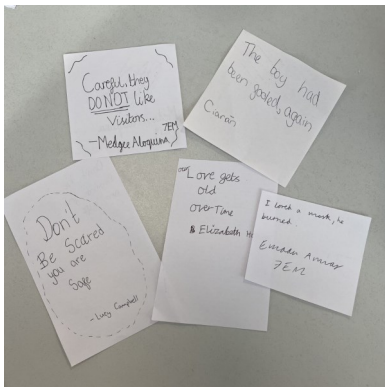 Careful, they
DO NOT like
visitors...
7EM
- Medgee Aloquina
The boy had
been gooled, again
Ciarán
Don't
Be Scared
you are
Safe
- Lucy Campbell
our Love gets
old
over Time
Elizabeth H
I loved a mask, he
burned.
Anwar
7EM